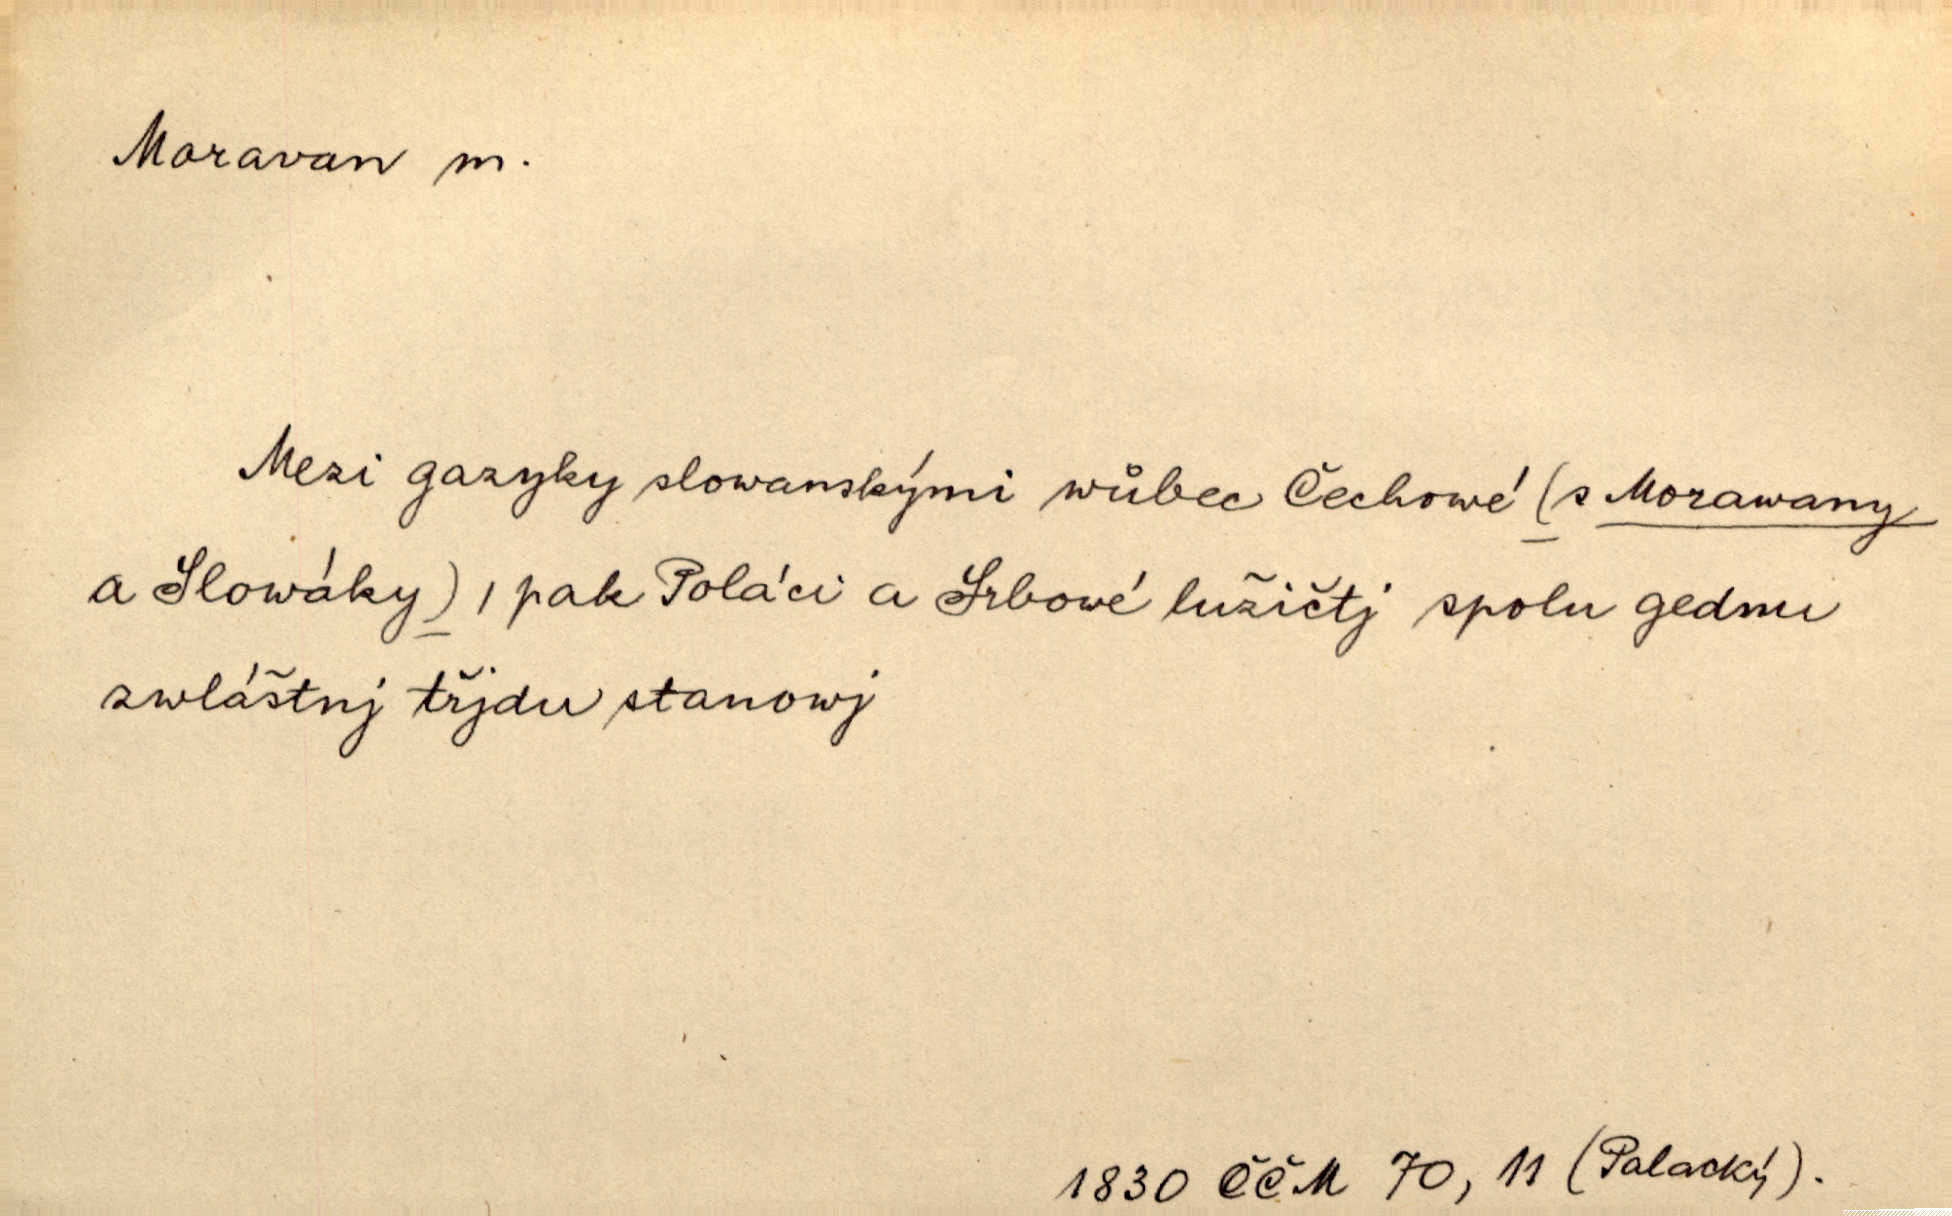 Moravan m.
Mezi gazyky slowanskými wůbec Čechowé (s Morawany
a Slowáky), pak Poláci a Srbowé lužičtj spolu gednu
zwláštnj třjdu stanowj
1830 ČČM 70, 11 (Palacký).